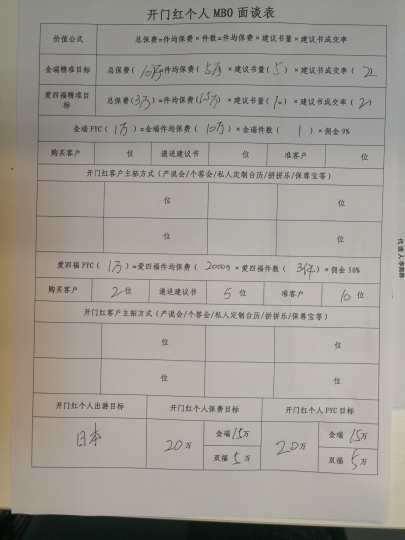 开门红个人 MBO 面谈表
价值公式 总保费=件均保费×件数=件均保费×建议书量×建议书成交率
金瑞精准目标 总保费(10万)件均保费(5万)×建议书量(5)×建议书成交率(2
爱四福精准目标 总保费(3万)=件均保费(1.5万)×建议书量(10)×建议书成交率(2)
金瑞 FYC(1万)=金瑞件均保费(10万)×金瑞件数(1)×佣金 9%
购买客户 位 递送建议书 位 准客户 位
开门红客户主拓方式(产说会/个答会/私人定制台历/拼拼乐/保尊宝等)
位 位
位 位
爱四福 FYC(1万)=爱四福件均保费(20000)×爱四福件数(3件)×佣金 50%
购买客户 2位 递送建议书 5位 准客户 10位
开门红客户主拓方式(产说会/个答会/私人定制台历/拼拼乐/保尊宝等)
位 位
位 位
开门红个人出游目标 开门红个人保费目标 开门红个人 FYC 目标
日本 20万 金瑞 15万 20万 金瑞 15万
双福 5万 双福 5万
代理人李